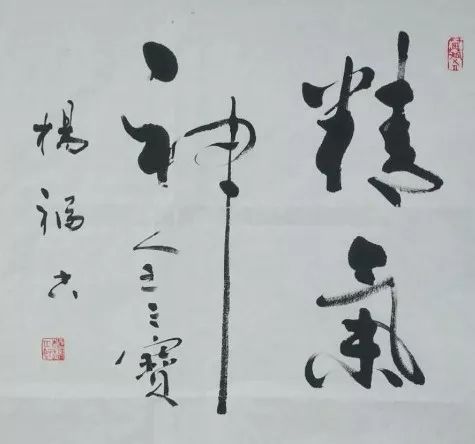 精氣
神
人生三寶
楊福